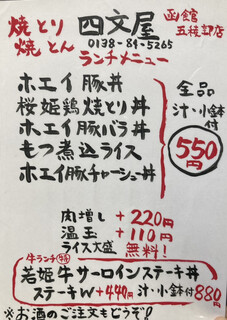 焼とり 四文屋 函館
焼とん 0138-84-5265 五稜郭店
ランチメニュー
ホエイ豚丼
桜姫鶏焼とり丼
ホエイ豚バラ丼
もつ煮込ライス
ホエイ豚チャーシュー丼
全品
汁・小鉢付
550円
肉増し +220円
温玉 +110円
ライス大盛 無料!
牛ランチ
若姫牛サーロインステーキ丼
ステーキW+440円 汁・小鉢付 880円
※お酒のご注文もどうぞ!